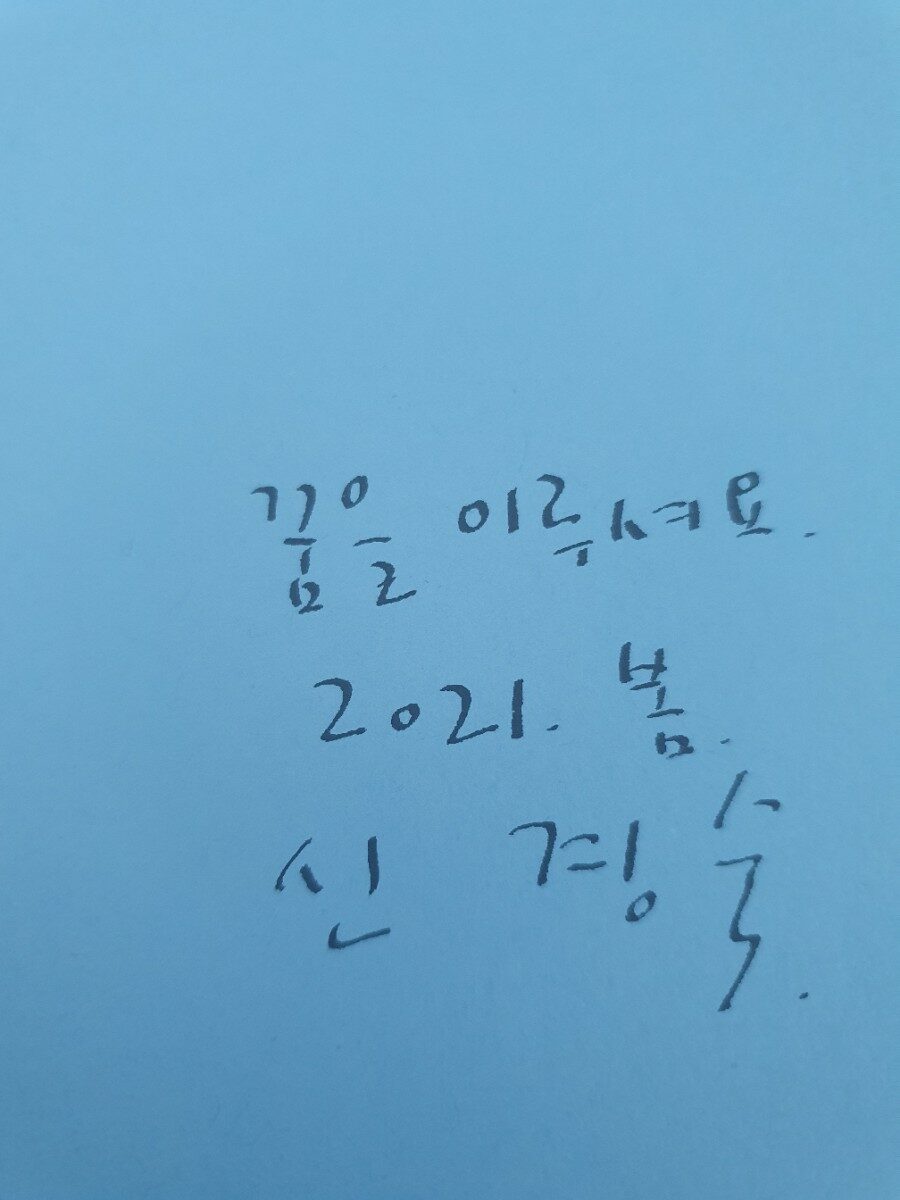 꿈을 이루셔요.
2021. 봄.
신 경 숙.